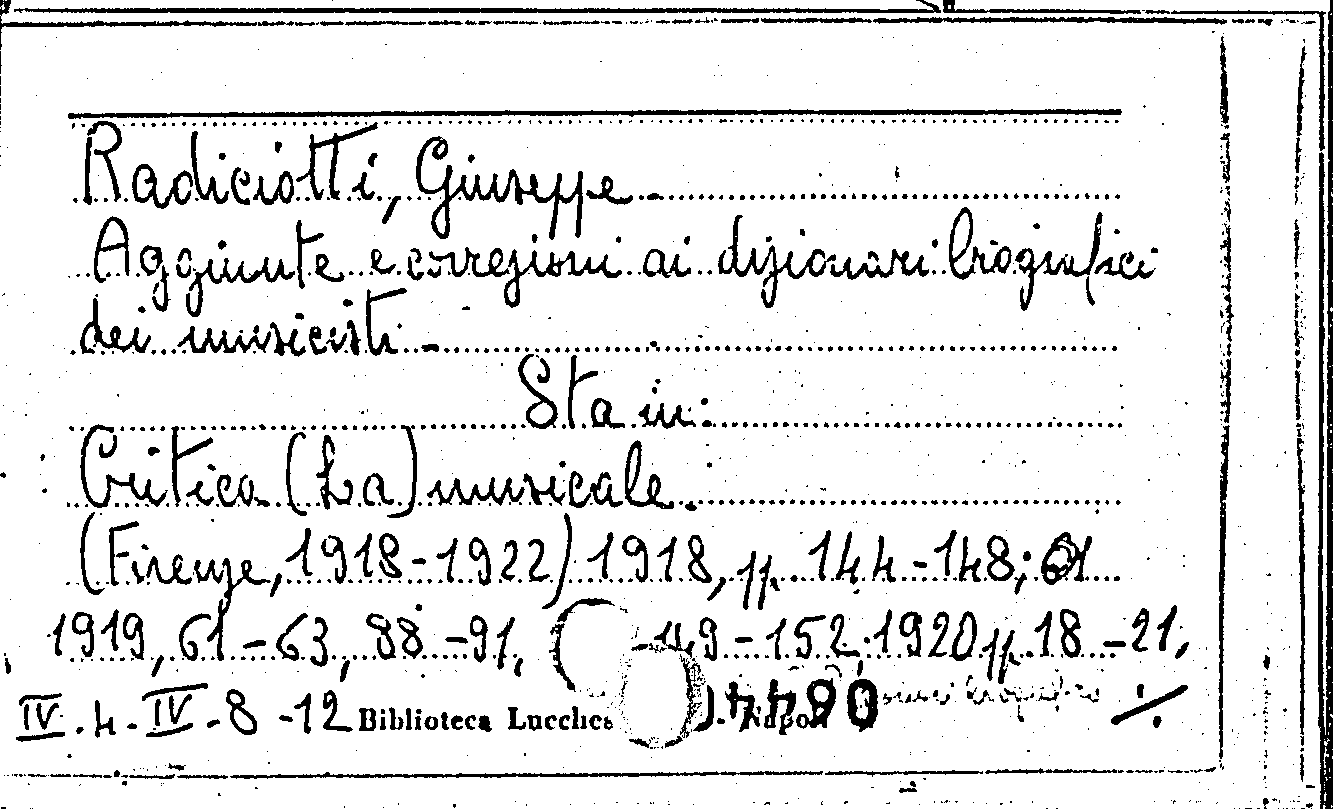 Radiciotti, Giuseppe -
Aggiunte e correzioni ai dizionari biografici
dei musicisti -
Sta in:
Critica (La) musicale.
(Firenze, 1918-1922) 1918, pp. 144-148;
1919, 61-63, 88-91, 149-152; 1920 pp. 18-21,
IV.4.-IV.8-12 Biblioteca Napoli ./.